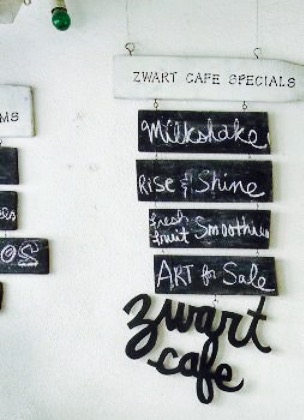 ZWART CAFE SPECIALS
Milkshake
RISE & Shine
fresh
fruit Smoothies
ART for Sale
zwart
cafe
MS
OS